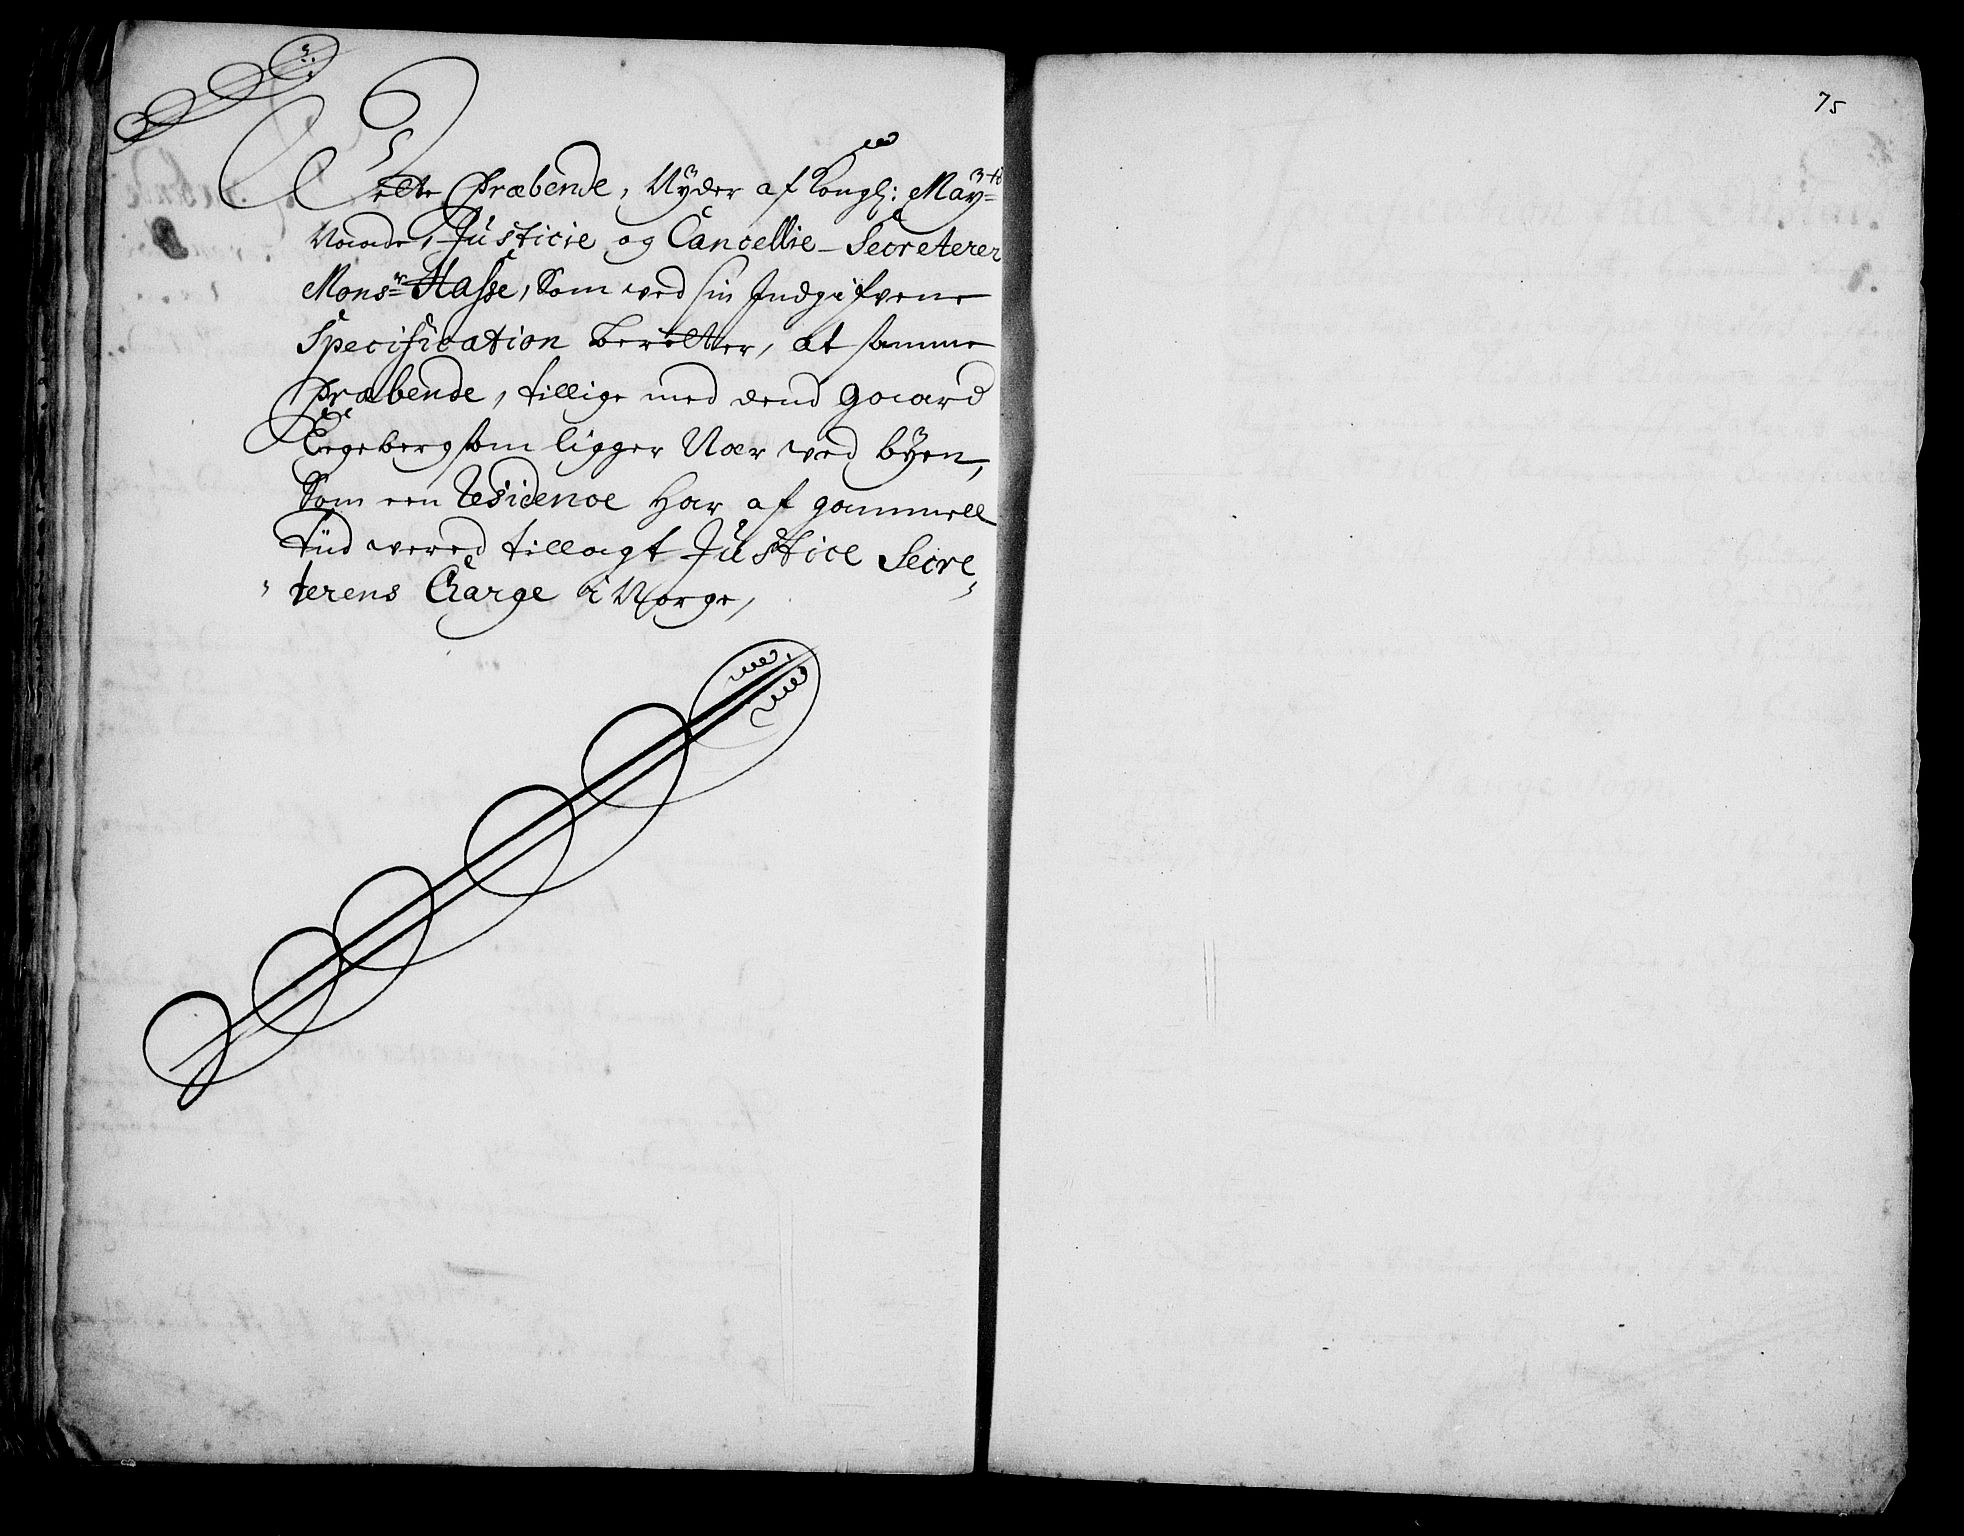 Dette Præbende, Nyder af Kongl: May=tz
Naade, Justicie og Cancellie-Secreterer
Mons:r Hasse, Som ved sin Indgifvene
Specification beretter, at samme
Præbende, tillige med dend gaard
Egeberg som ligger Nær ved byen,
Som een Residence har af gammell
tiid vered tillagt Justice Secre-
terens Charge i Norge,
75